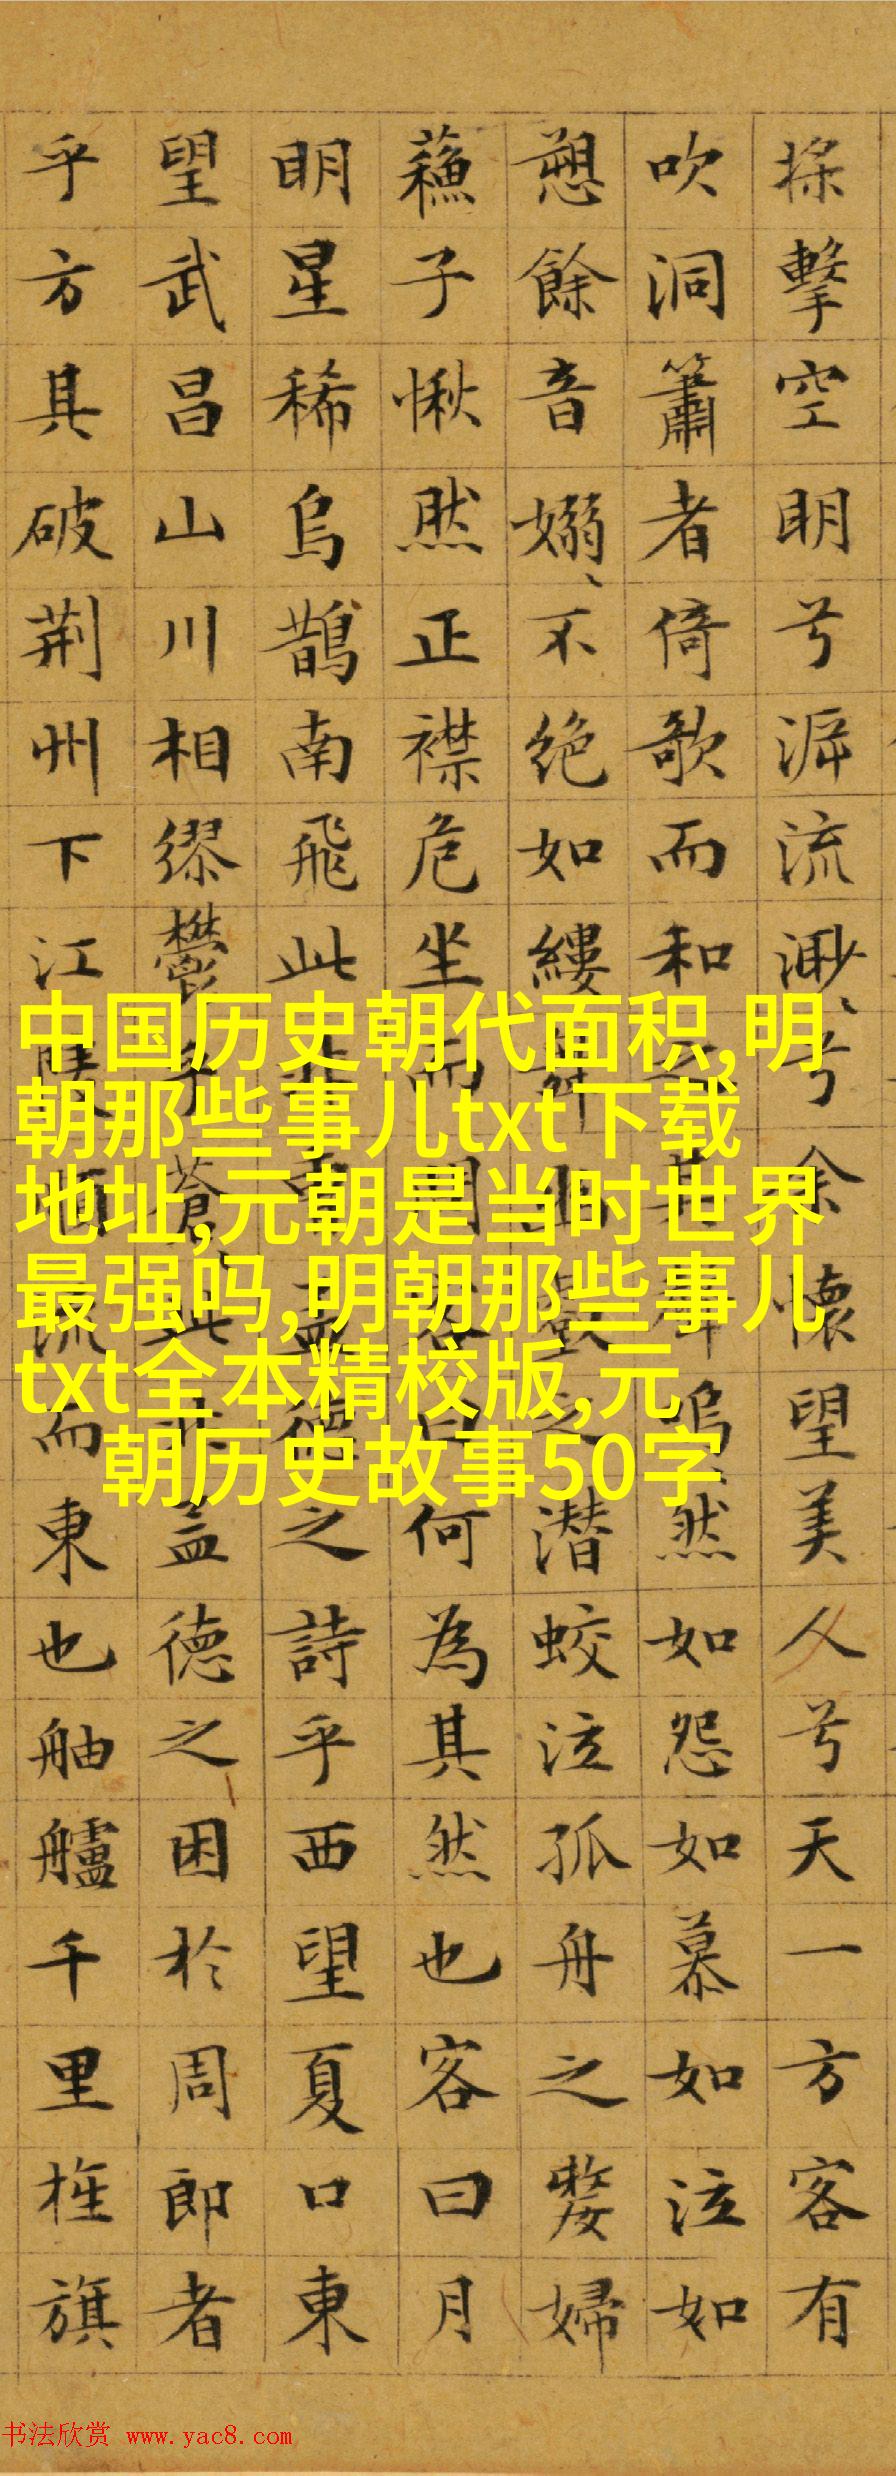 擊空明兮泝流渺〻兮余懷望美人兮天一方客有
吹洞簫者倚歌而和之其聲嗚〻然如怨如慕如泣如
愬餘音嫋〻不絶如縷舞幽壑之潜蛟泣孤舟之嫠婦
蘓子愀然正襟危坐而問客曰何為其然也客曰月
明星稀烏鵲南飛此非曹孟德之詩乎西望夏口東
望武昌山川相繆欝乎蒼〻此非孟德之困於周郎者
乎方其破荆州下江陵順流而東也舳艫千里旌旗
中国历史朝代面积,明
朝那些事儿txt下载
地址,元朝是当时世界
最强吗,明朝那些事儿
txt全本精校版,元
朝历史故事50字
书法欣赏 www.yac8.com